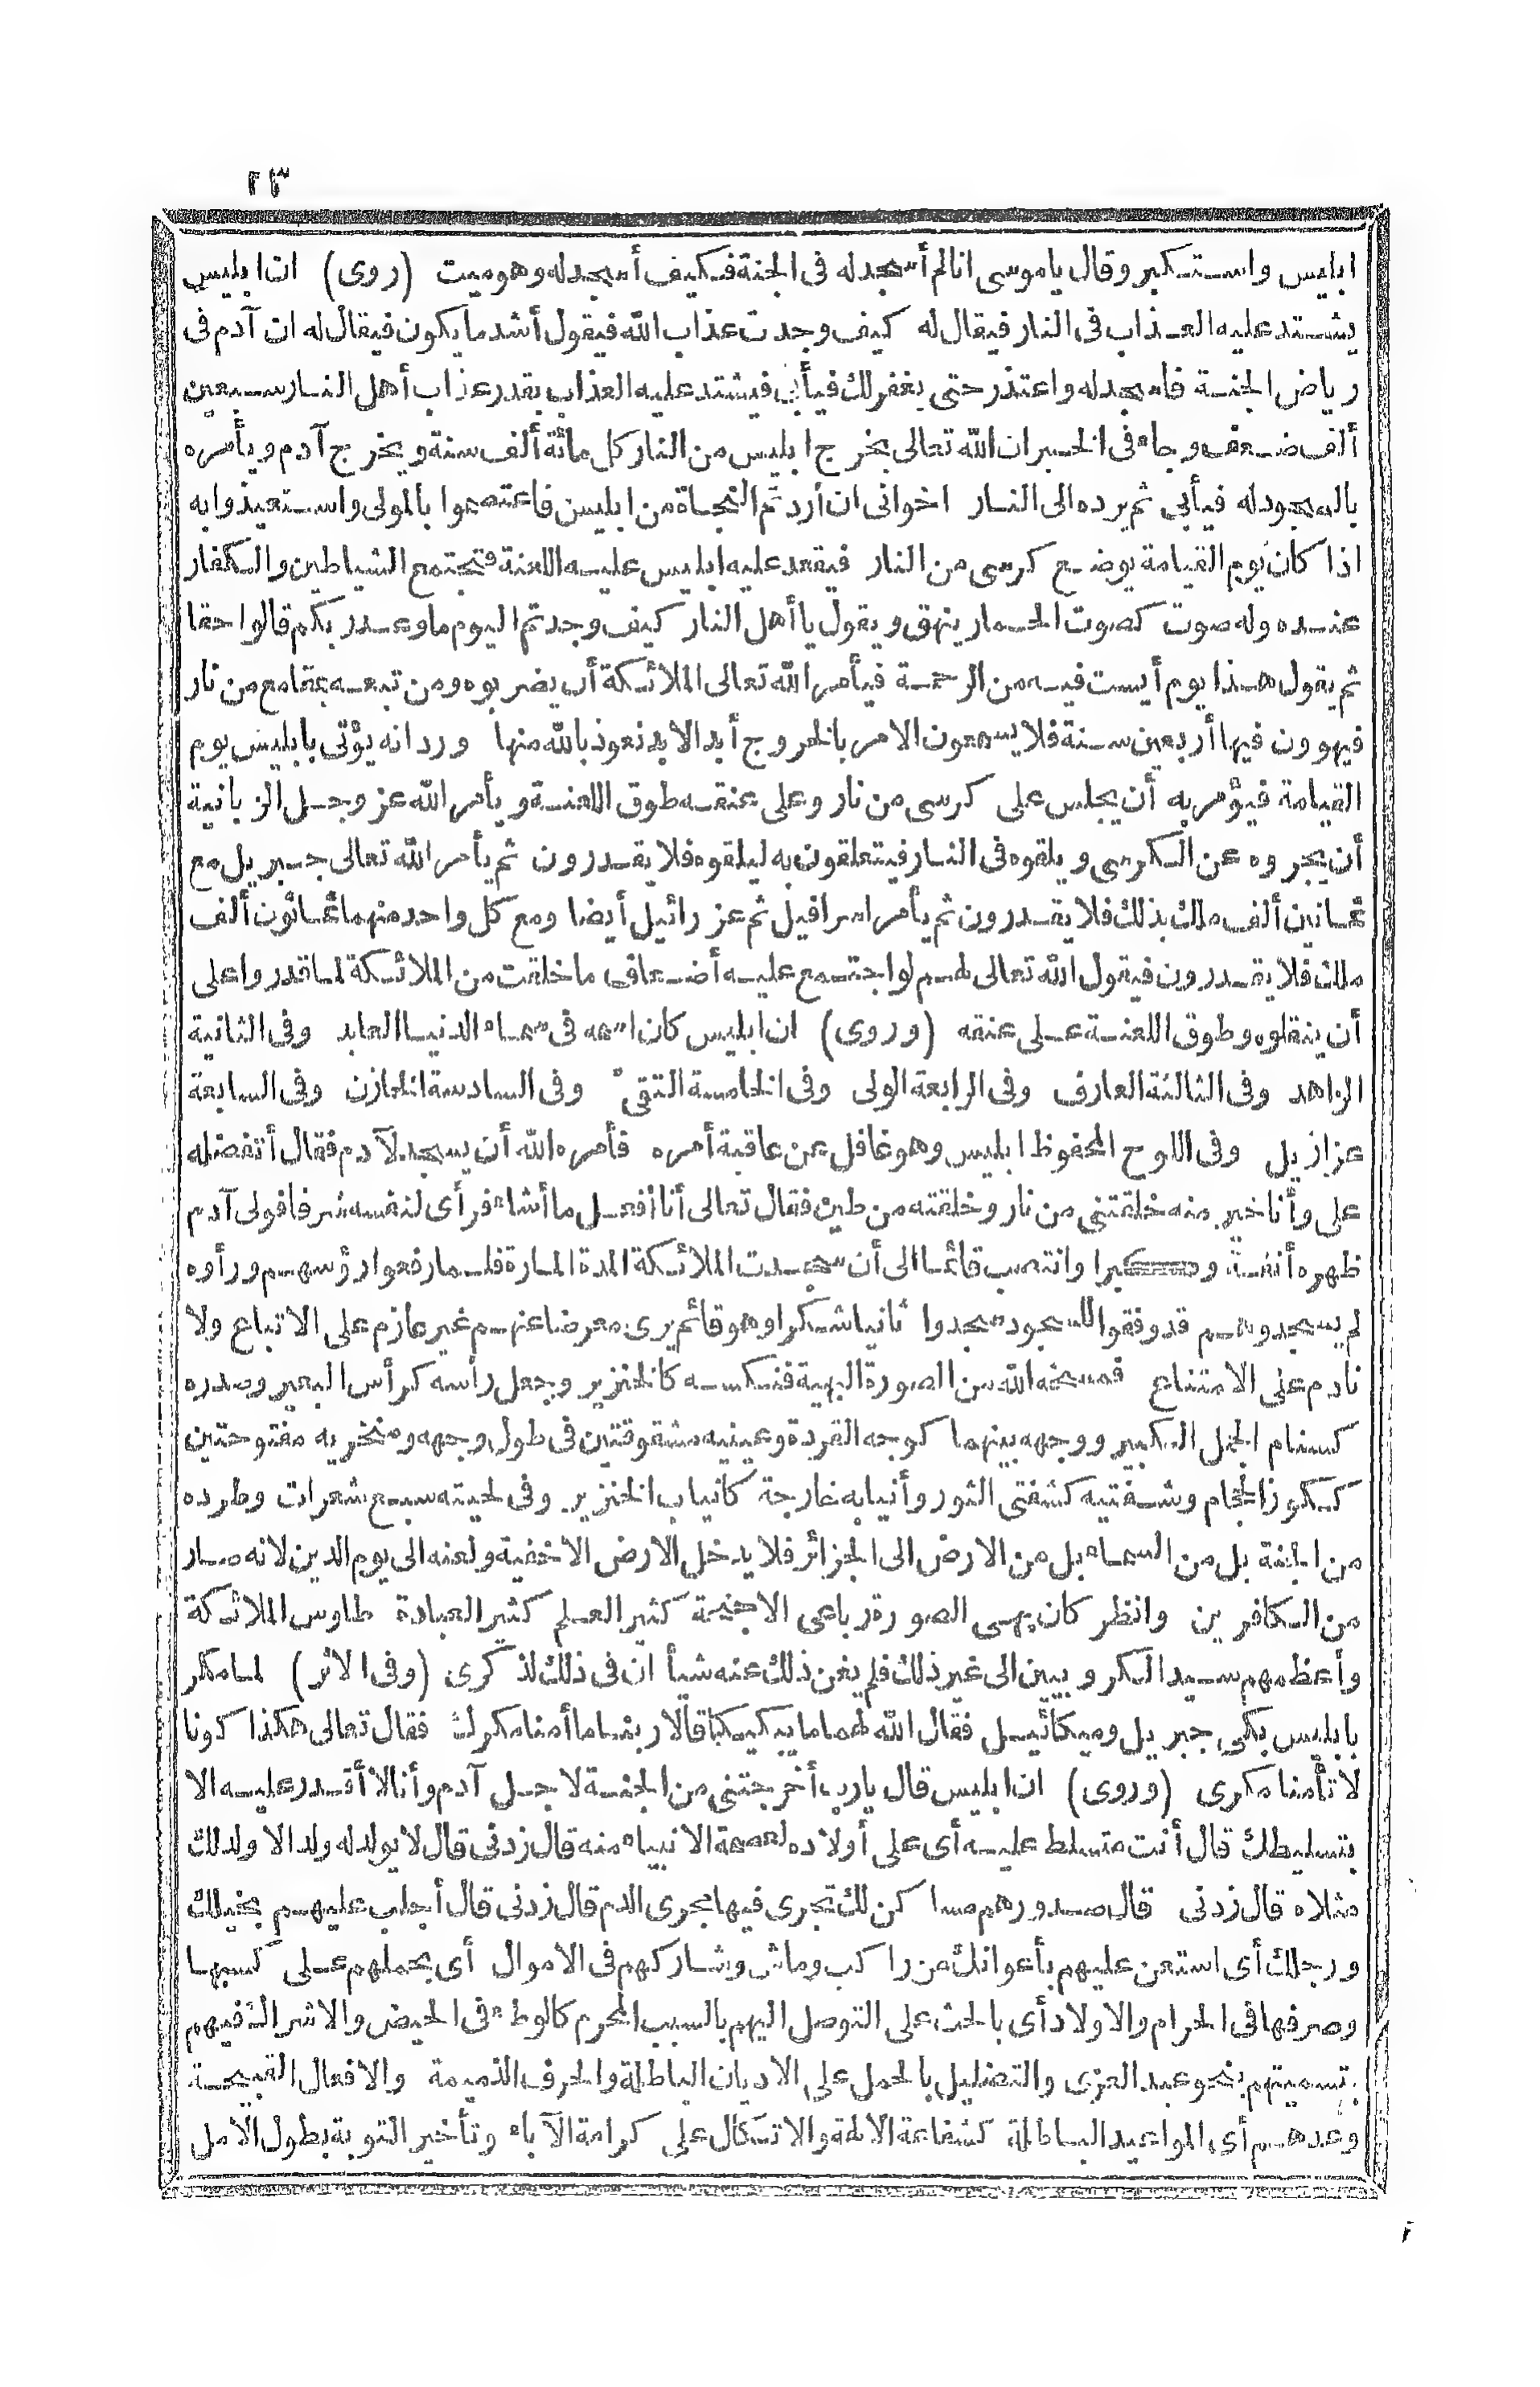 ٢٣
ابليس واستكبر وقال ياموسى انالم أسجدله فى الجنة فكيف أسجدله وهوميت (روى) ان ابليس
يشتد عليه العذاب فى النار فيقال له كيف وجدت عذاب الله فيقول أشد ما يكون فيقال له ان آدم فى
رياض الجنة فاسجدله واعتذر حتى يغفرلك فيأبى فيشتد عليه العذاب بقدر عذاب أهل النار سبعين
ألف ضعف وجاء فى الخبر ان الله تعالى يخرج ابليس من النار كل مائة ألف سنة ويخرج آدم ويأمره
بالسجودله فيأبى ثم يرده الى النار اخوانى ان أردتم النجاة من ابليس فاعتصموا بالمولى واستعيذوا به
اذا كان يوم القيامة يوضع كرسى من النار فيقعد عليه ابليس عليه اللعنة فتجتمع الشياطين والكفار
عنده وله صوت كصوت الحمار ينهق ويقول يا أهل النار كيف وجدتم اليوم ما وعد ربكم قالوا حقا
ثم يقول هذا يوم أيست فيه من الرحمة فيأمر الله تعالى الملائكة أن يضربوه ومن تبعه بمقامع من نار
فيهوون فيها أربعين سنة فلا يسمعون الامر بالخروج أبد الابد نعوذ بالله منها ورد انه يؤتى بابليس يوم
القيامة فيؤمر به أن يجلس على كرسى من نار وعلى عنقه طوق اللعنة ويأمر الله عز وجل الزبانية
أن يجروه عن الكرسى ويلقوه فى النار فيتعلقون به ليلقوه فلا يقدرون ثم يأمر الله تعالى جبريل مع
ثمانين ألف ملك بذلك فلا يقدرون ثم يأمر اسرافيل ثم عزرائيل أيضا ومع كل واحد منهما ثمانون ألف
ملك فلا يقدرون فيقول الله تعالى لهم لو اجتمع عليه أضعاف ما خلقت من الملائكة لما قدروا على
أن ينقلوه وطوق اللعنة على عنقه (وروى) ان ابليس كان اسمه فى سماء الدنيا العابد وفى الثانية
الزاهد وفى الثالثة العارف وفى الرابعة الولى وفى الخامسة التقى وفى السادسة الخازن وفى السابعة
عزازيل وفى اللوح المحفوظ ابليس وهو غافل عن عاقبة أمره فأمره الله أن يسجد لآدم فقال أتفضله
على وأنا خير منه خلقتنى من نار وخلقته من طين فقال تعالى أنا أفعل ما أشاء فرأى لنفسه شرفا فولى آدم
ظهره أنفة وكبرا وانتصب قائما الى أن سجدت الملائكة المدة المارة فلما رفعوا رؤسهم ورأوه
لم يسجد وهم قد وفقوا للسجود سجدوا ثانيا شكرا وهو قائم يرى معرضا عنهم غير عازم على الاتباع ولا
نادم على الامتناع فمسخه الله من الصورة البهية فنكسه كالخنزير وجعل رأسه كرأس البعير وصدره
كسنام الجمل الكبير ووجهه بينهما كوجه القردة وعينيه مشقوقتين فى طول وجهه ومنخريه مفتوحتين
ككوز الحجام وشفتيه كشفتى الثور وأنيابه خارجة كانياب الخنزير وفى لحيته سبع شعرات وطرده
من الجنة بل من السماء بل من الارض الى الجزائر فلا يدخل الارض الا خفية ولعنه الى يوم الدين لانه صار
من الكافرين وانظر كان بهى الصورة رباعى الاجنحة كثير العلم كثير العبادة طاوس الملائكة
وأعظمهم سيد الكروبيين الى غير ذلك فلم يغن ذلك عنه شيأ ان فى ذلك لذكرى (وفى الاثر) لما مكر
بابليس بكى جبريل وميكائيل فقال الله لهما ما يبكيكما قالا ربنا ما أمنا مكرك فقال تعالى هكذا كونا
لا تأمنا مكرى (وروى) ان ابليس قال يارب أخرجتنى من الجنة لاجل آدم وأنا لا أقدر عليه الا
بتسليطك قال أنت متسلط عليه أى على أولاده لعصمة الانبياء منه قال زدنى قال لا يولد له ولد الا ولد لك
مثلاه قال زدنى قال صدورهم مساكن لك تجرى فيها مجرى الدم قال زدنى قال أجلب عليهم بخيلك
ورجلك أى استعن عليهم بأعوانك من راكب وماش وشاركهم فى الاموال أى بحملهم على كسبها
وصرفها فى الحرام والاولاد أى بالحث على التوصل اليهم بالسبب المحرم كالوطء فى الحيض والاشراك فيهم
بتسميتهم بنحو عبد العزى والتضليل بالحمل على الاديان الباطلة والحرف الذميمة والافعال القبيحة
وعدهم أى المواعيد الباطلة كشفاعة الآلهة والاتكال على كرامة الآباء وتأخير التوبة بطول الامل